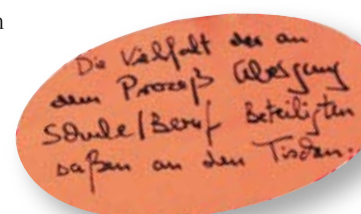 n
Die Vielfalt der an
dem Prozeß Übergang
Schule/Beruf Beteiligten
saßen an den Tischen.